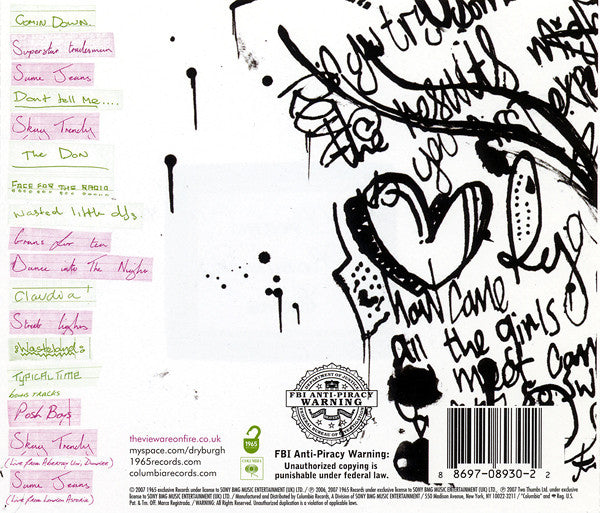 Comin Down.
Superstar tradesman
Same Jeans
Dont tell Me....
Skag Trendy
The Don
FACE FOR THE RADIO
Wasted little DJs.
Grans for tea
Dance into The Night
Claudia
Street lights
Wasteland
TYPICAL TIME
BONUS TRACKS
Posh Boys
Skag Trendy
(Live from Abertay Uni, Dundee)
Same Jeans
(Live from London Astoria)
if you try
the results
you
expe
now come
all the girls
meet
theviewareonfire.co.uk
myspace.com/dryburgh
1965records.com
columbiarecords.com
1965
COLUMBIA
FBI ANTI-PIRACY
WARNING
FBI Anti-Piracy Warning:
Unauthorized copying is
punishable under federal law.
8 8697-08930-2 2
© 2007 1965 exclusive Records under license to SONY BMG MUSIC ENTERTAINMENT (UK) LTD. / ℗ 2006, 2007 1965 exclusive Records under license to SONY BMG MUSIC ENTERTAINMENT (UK) LTD, except ℗ 2007 Two Thumbs Ltd. under exclusive
license to SONY BMG MUSIC ENTERTAINMENT (UK) LTD. / Manufactured and Distributed by Columbia Records, A Division of SONY BMG MUSIC ENTERTAINMENT / 550 Madison Avenue, New York, NY 10022-3211 / "Columbia" and Reg. U.S.
Pat. & Tm. Off. Marca Registrada. / WARNING: All Rights Reserved. Unauthorized duplication is a violation of applicable laws.